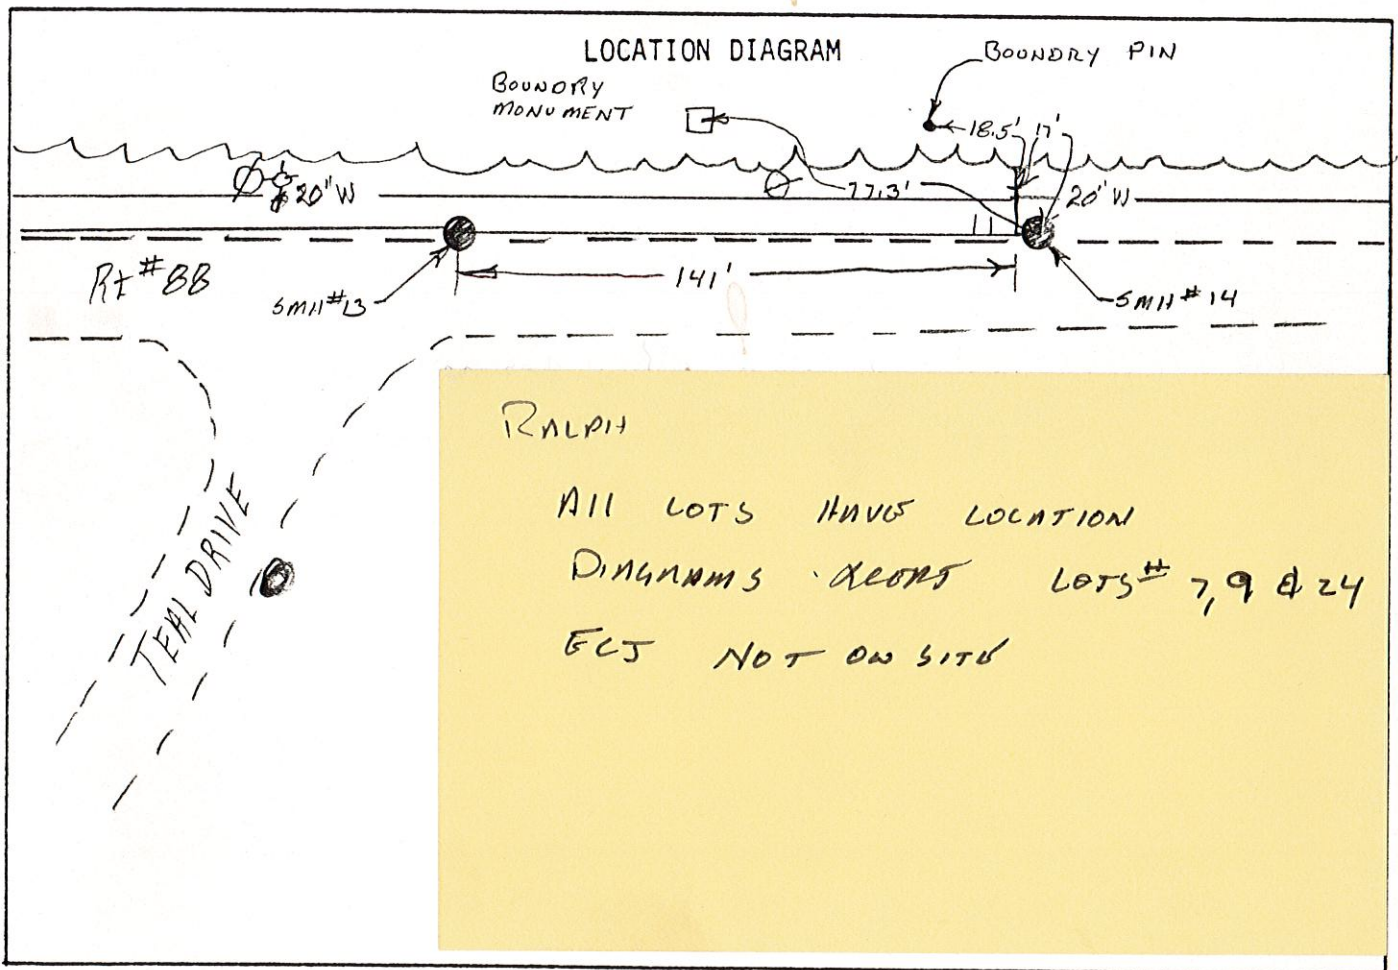 LOCATION DIAGRAM
BOUNDRY PIN
BOUNDRY
MONUMENT
18.5'
17'
20" W
77.3'
20" W
Rt #88
141'
SMH #13
SMH # 14
TEAL DRIVE
RALPH
All LOTS HAVE LOCATION
DIAGRAMS LOTS # 7, 9 & 24
NOT ON SITE